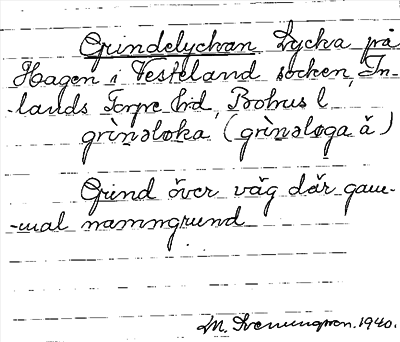 Grindelyckan Lycka på
Hagen i Vesteland socken, In-
-lands Torpe hd, Bohus l
grìnəlɷka (grìnəlɷga å̆)
Grind över väg där gam-
-mal namngrund
M. Svenungson. 1940.